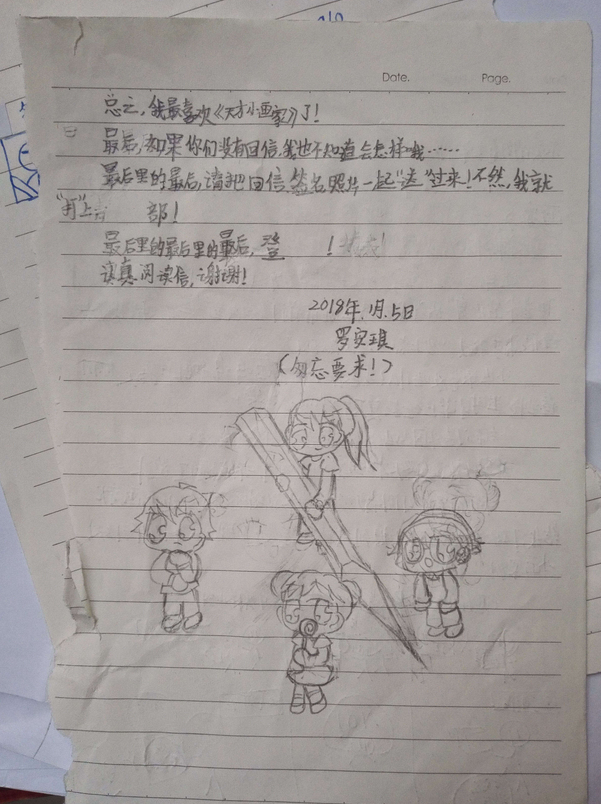 Date. Page.
总之,我最喜欢《天才小画家》了!
最后,如果你们没有回信,我也不知道会怎样哦……
最后里的最后,请把回信,签名,照片一起“送”过来!不然,我就
部!
最后里的最后里的最后,登 !
认真阅读信,谢谢!
2018年.1月.5日
罗安琪
(勿忘要求!)